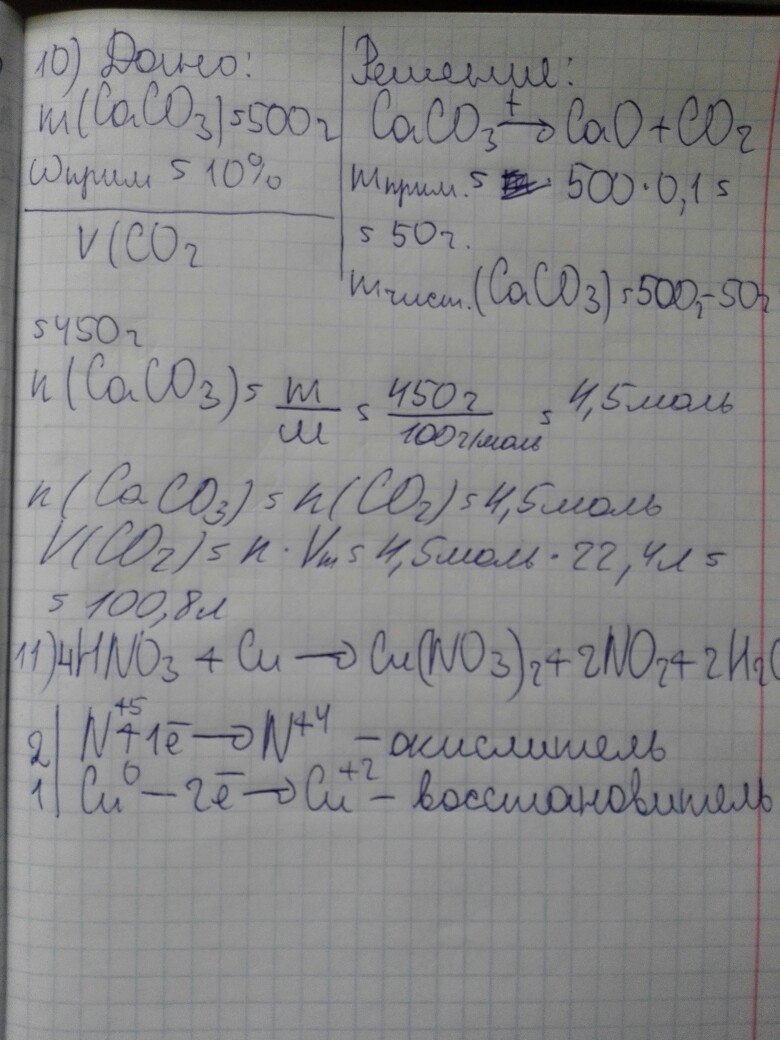 10) Дано:
m(CaCO3)=500г
ωприм = 10%
V(CO2
Решение:
CaCO3 t→ CaO+CO2
mприм. = 500·0,1 =
= 50г.
mчист.(CaCO3)=500г-50г
=450г
n(CaCO3)= m/M = 450г/100г/моль = 4,5моль
n(CaCO3)=n(CO2)=4,5моль
V(CO2)=n·Vm=4,5моль·22,4л =
= 100,8л
11)4HNO3 + Cu → Cu(NO3)2+2NO2+2H2O
2| N+5 +1e̅ → N+4 – окислитель
1| Cu0 – 2e̅ → Cu+2 – восстановитель